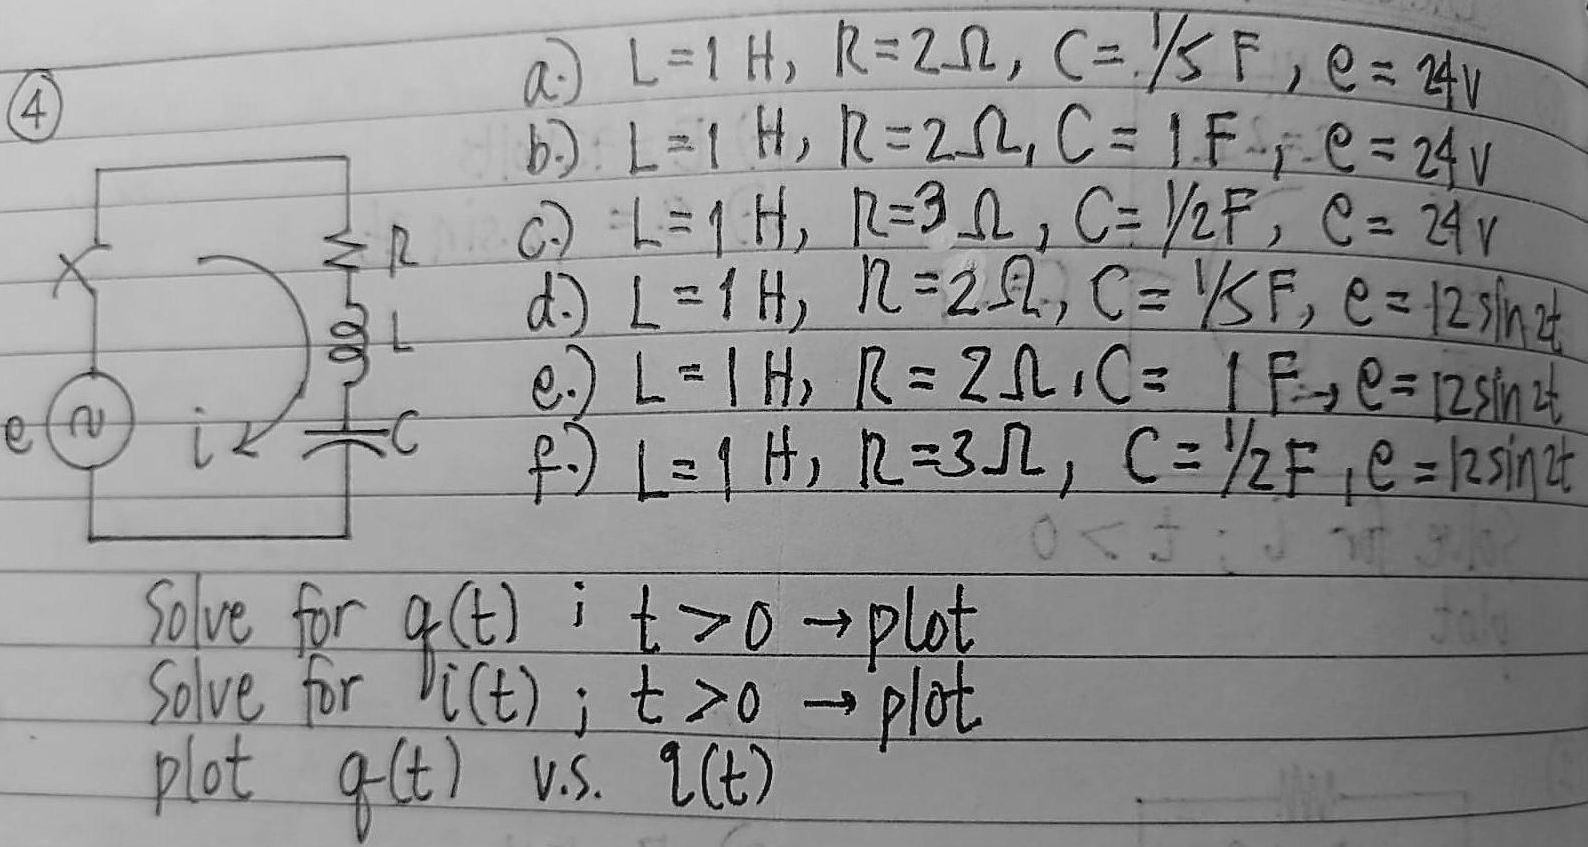 ④
a.) L=1 H, R=2Ω, C=1/5 F, e=24v
b.) L=1 H, R=2Ω, C=1 F, e=24v
c.) L=1 H, R=3Ω, C=1/2F, e=24v
d.) L=1H, R=2Ω, C=1/5F, e=12sin2t
e.) L=1H, R=2Ω, C=1F, e=12sin2t
f.) L=1 H, R=3Ω, C=1/2F, e=12sin2t
R
L
C
e
i
Solve for q(t) ; t>0 → plot
Solve for i(t) ; t>0 → plot
plot q(t) v.s. i(t)